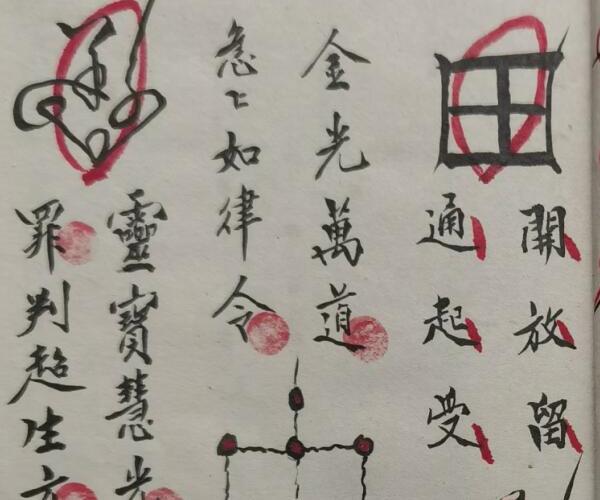 田
開放留
通起受
金光萬道
急〻如律令
靈寶慧光
罪判超生方